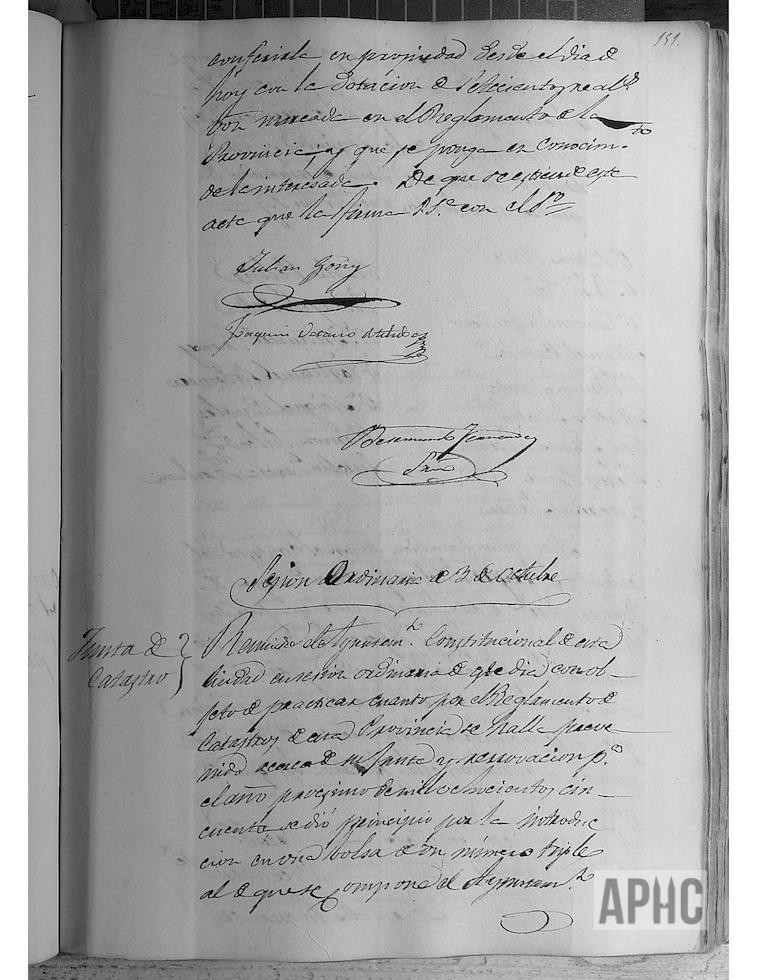 151.
conferirla en propiedad desde el dia de
hoy con la dotacion de setecientos reales
von marcada en el Reglamento de la
Provincia, y que se ponga en conocim.to
de la interesada. De que se estiende este
acta que la firma S.S.a con el S.rio
Julian Goñy
Joaquin
Veremundo Fernandez
Srio
Sesion Ordinaria de 3 de Octubre
Junta de
Catastro
Reunido el Ayuntam.to Constitucional de esta
Ciudad en sesion ordinaria de este dia con ob-
jeto de practicar cuanto por el Reglamento de
Catastros de esta Provincia se halla preve-
nido acerca de su Junta y renovacion p.a
el año procsimo de mil ochocientos cin-
cuenta se dió principio por la introduc
cion en una bolsa de un número triple
al de que se compone el Ayuntam.to
APHC